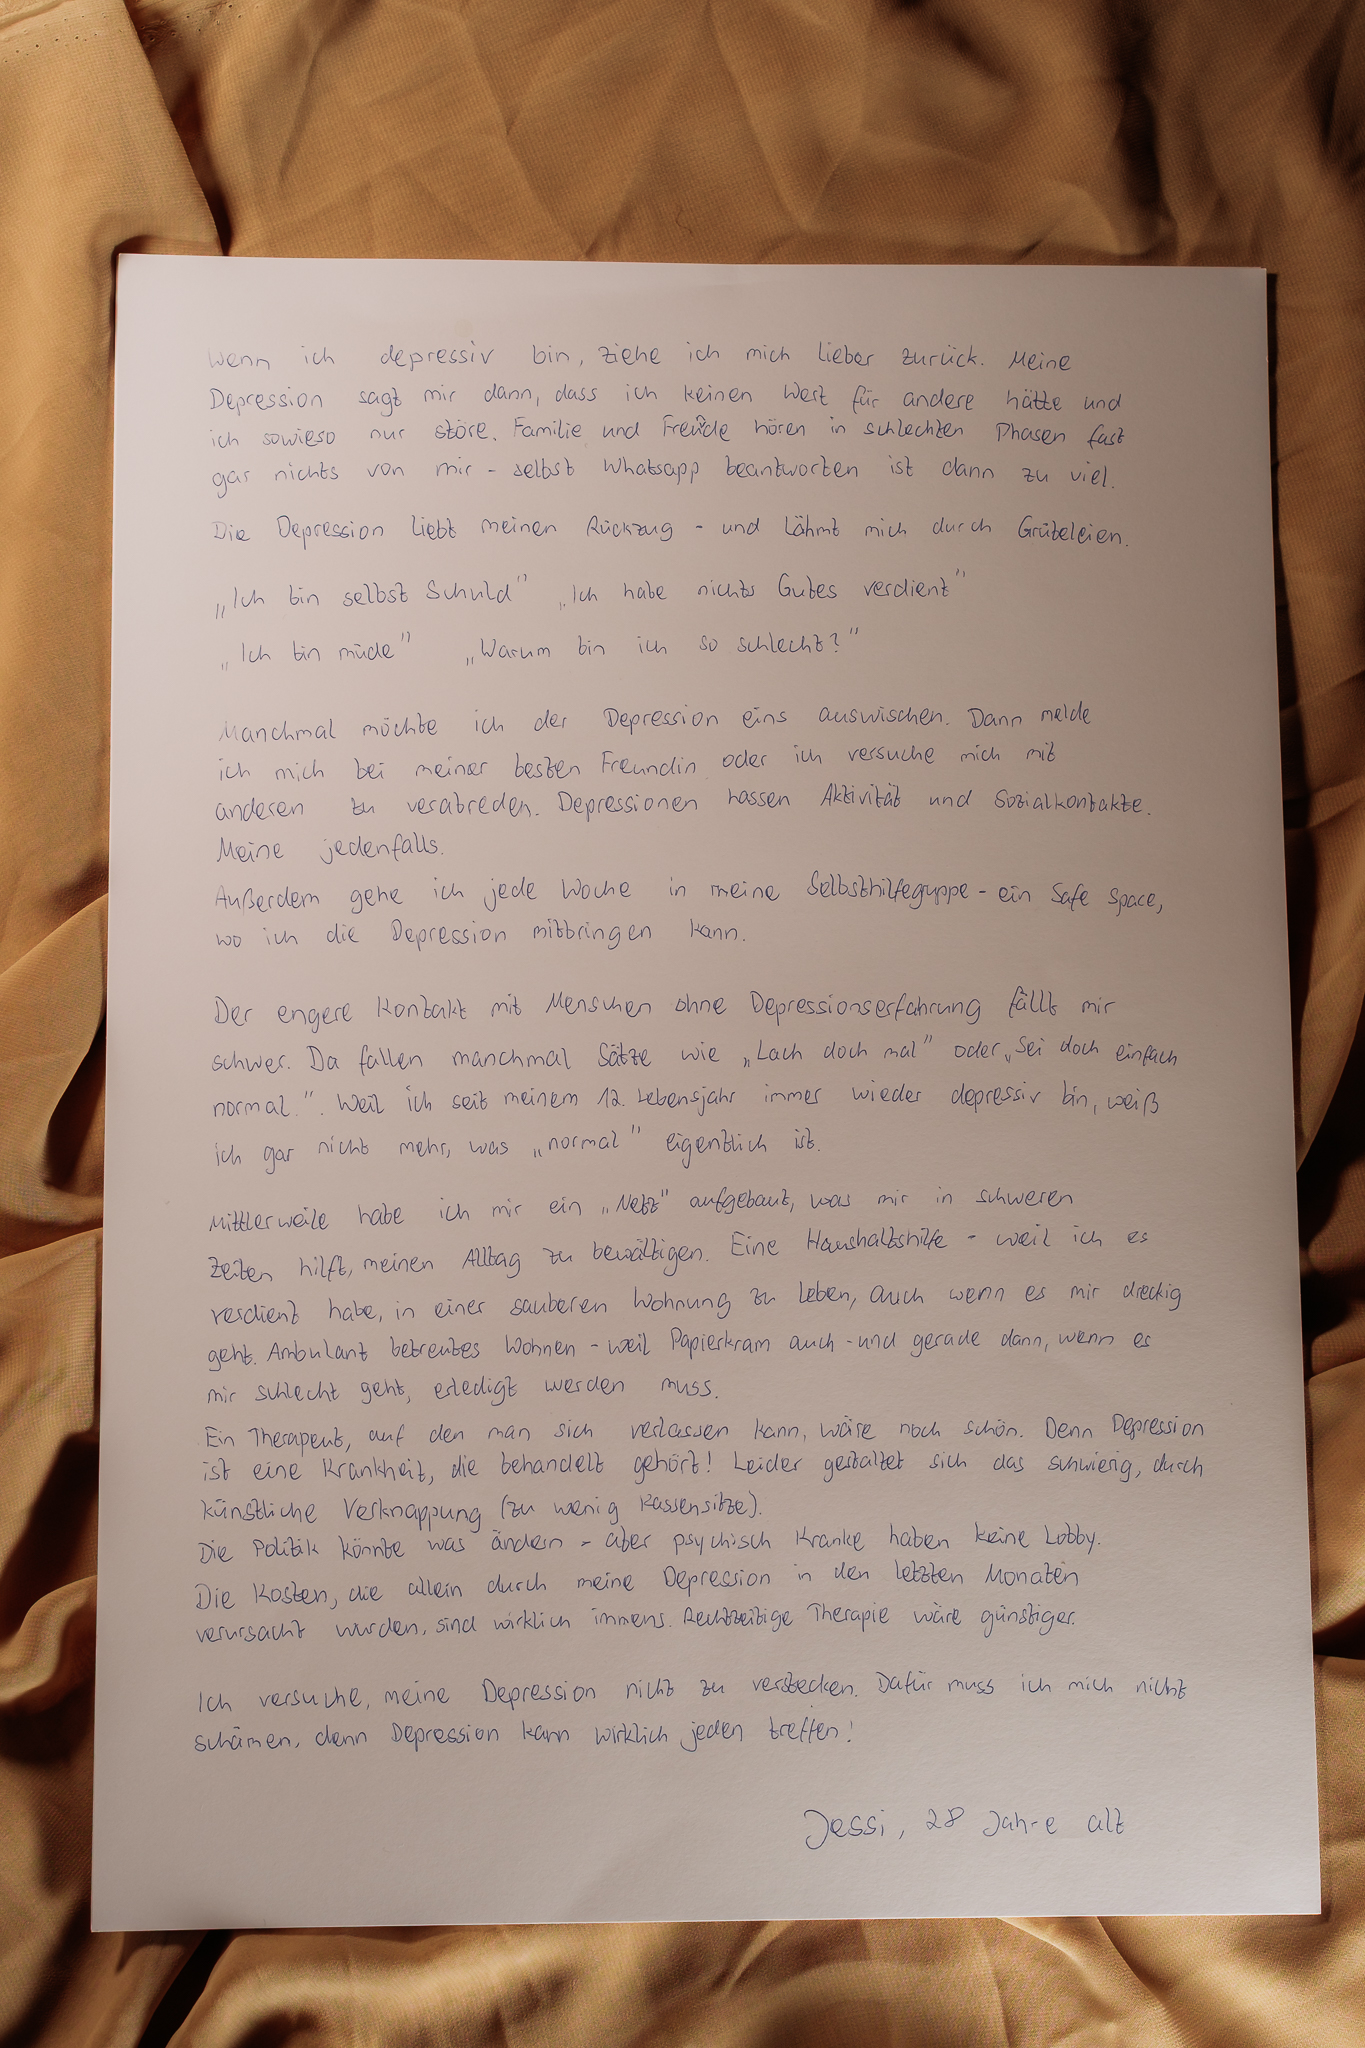 Wenn ich depressiv bin, ziehe ich mich lieber zurück. Meine
Depression sagt mir dann, dass ich keinen Wert für andere hätte und
ich sowieso nur störe. Familie und Freunde hören in schlechten Phasen fast
gar nichts von mir - selbst Whatsapp beantworten ist dann zu viel.
Die Depression liebt meinen Rückzug - und lähmt mich durch Grübeleien.
„Ich bin selbst Schuld" „Ich habe nichts Gutes verdient"
„Ich bin müde" „Warum bin ich so schlecht?"
Manchmal möchte ich der Depression eins auswischen. Dann melde
ich mich bei meiner besten Freundin oder ich versuche mich mit
anderen zu verabreden. Depressionen hassen Aktivität und Sozialkontakte.
Meine jedenfalls.
Außerdem gehe ich jede Woche in meine Selbsthilfegruppe - ein Safe Space,
wo ich die Depression mitbringen kann.
Der engere Kontakt mit Menschen ohne Depressionserfahrung fällt mir
schwer. Da fallen manchmal Sätze wie „Lach doch mal" oder „Sei doch einfach
normal.". Weil ich seit meinem 12. Lebensjahr immer wieder depressiv bin, weiß
ich gar nicht mehr, was „normal" eigentlich ist.
Mittlerweile habe ich mir ein „Netz" aufgebaut, was mir in schweren
Zeiten hilft, meinen Alltag zu bewältigen. Eine Haushaltshilfe - weil ich es
verdient habe, in einer sauberen Wohnung zu leben, auch wenn es mir dreckig
geht. Ambulant betreutes Wohnen - weil Papierkram auch - und gerade dann, wenn es
mir schlecht geht, erledigt werden muss.
Ein Therapeut, auf den man sich verlassen kann, wäre noch schön. Denn Depression
ist eine Krankheit, die behandelt gehört! Leider gestaltet sich das schwierig, durch
künstliche Verknappung (zu wenig Kassensitze).
Die Politik könnte was ändern - aber psychisch Kranke haben keine Lobby.
Die Kosten, die allein durch meine Depression in den letzten Monaten
verursacht wurden, sind wirklich immens. Rechtzeitige Therapie wäre günstiger.
Ich versuche, meine Depression nicht zu verstecken. Dafür muss ich mich nicht
schämen, denn Depression kann wirklich jeden treffen!
Jessi, 28 Jahre alt